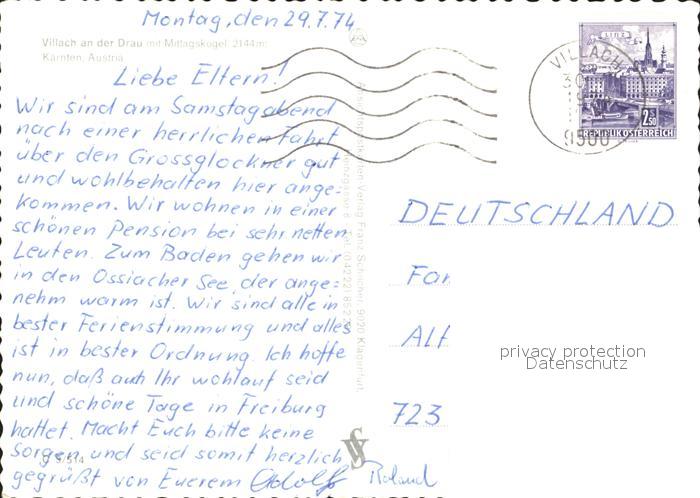 Montag, den 29.7.74
Villach an der Drau mit Mittagskogel, 2144m
Kärnten, Austria
Liebe Eltern!
Wir sind am Samstagabend
nach einer herrlichen Fahrt
über den Grossglockner gut
und wohlbehalten hier ange-
kommen. Wir wohnen in einer
schönen Pension bei sehr netten
Leuten. Zum Baden gehen wir
in den Ossiacher See, der ange-
nehm warm ist. Wir sind alle in
bester Ferienstimmung und alles
ist in bester Ordnung. Ich hoffe
nun, daß auch Ihr wohlauf seid
und schöne Tage in Freiburg
hattet. Macht Euch bitte keine
Sorgen und seid somit herzlich
gegrüßt von Eurem Adolf Roland
Verlag Franz Schilcher, 9020 Klagenfurt
VILLACH
9500
LINZ
2.50
REPUBLIK ÖSTERREICH
DEUTSCHLAND
Fa
Al
723
privacy protection
Datenschutz